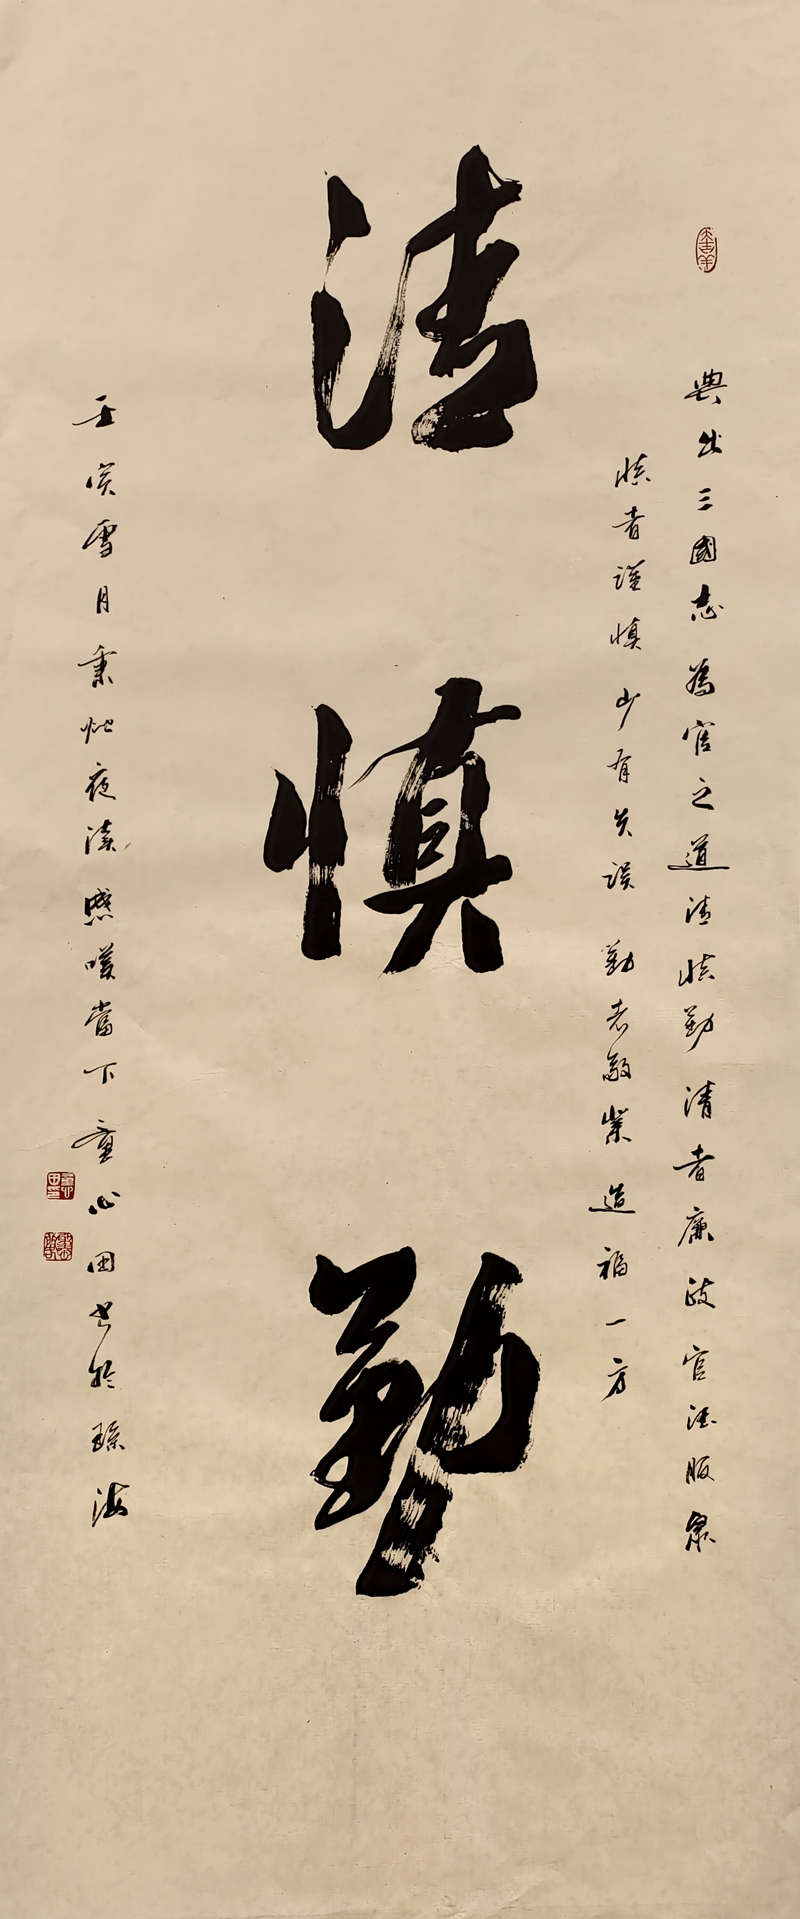 大吉羊
典出三國志為官之道清慎勤清者廉政官德服眾
慎者謹慎少有失誤勤者敬業造福一方
清慎勤
壬寅雪月秉烛夜讀感嘆當下童心田書於珠海